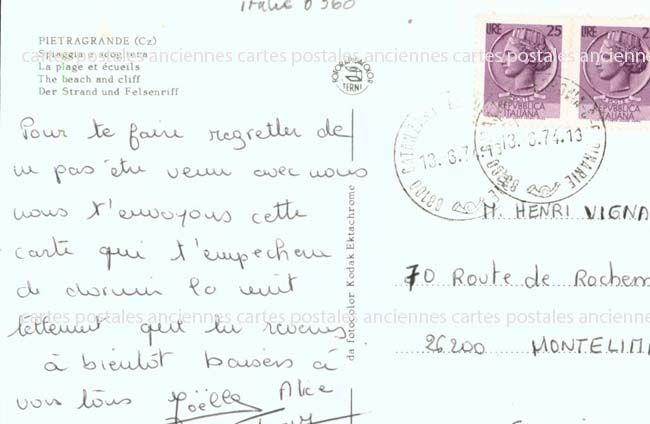 italie 0360
PIETRAGRANDE (Cz)
Spiaggia e scogliera
La plage et écueils
The beach and cliff
Der Strand und Felsenriff
FOTOCOLOR
TERNI
LIRE 25
POSTE
REPVBBLICA
ITALIANA
LIRE 2
POSTE
REPVBBLICA
ITALIANA
88100 CATANZARO
13.8.74.13
13.8.74.13
da fotocolor Kodak Ektachrome
cartes postales anciennes cartes postales anciennes cartes postales anciennes
Pour te faire regretter de
ne pas être venu avec nous
nous t'envoyons cette
carte qui t'empechera
de dormir la nuit
tellement que tu
à bientôt baisers à
vous tous Joëlle Alice
M. HENRI VIGNA
70 Route de Rochem
26200 MONTELIM
cartes postales anciennes cartes postales anciennes cartes postales anciennes